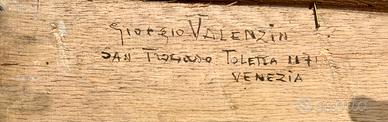 Giorgio Valenzin
San Trovaso Toletta 1171
Venezia